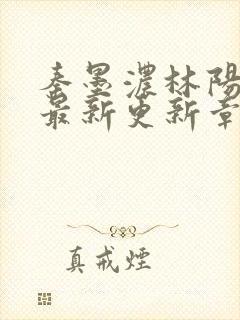 秦墨濃林陽
最新更新章
真戒煙